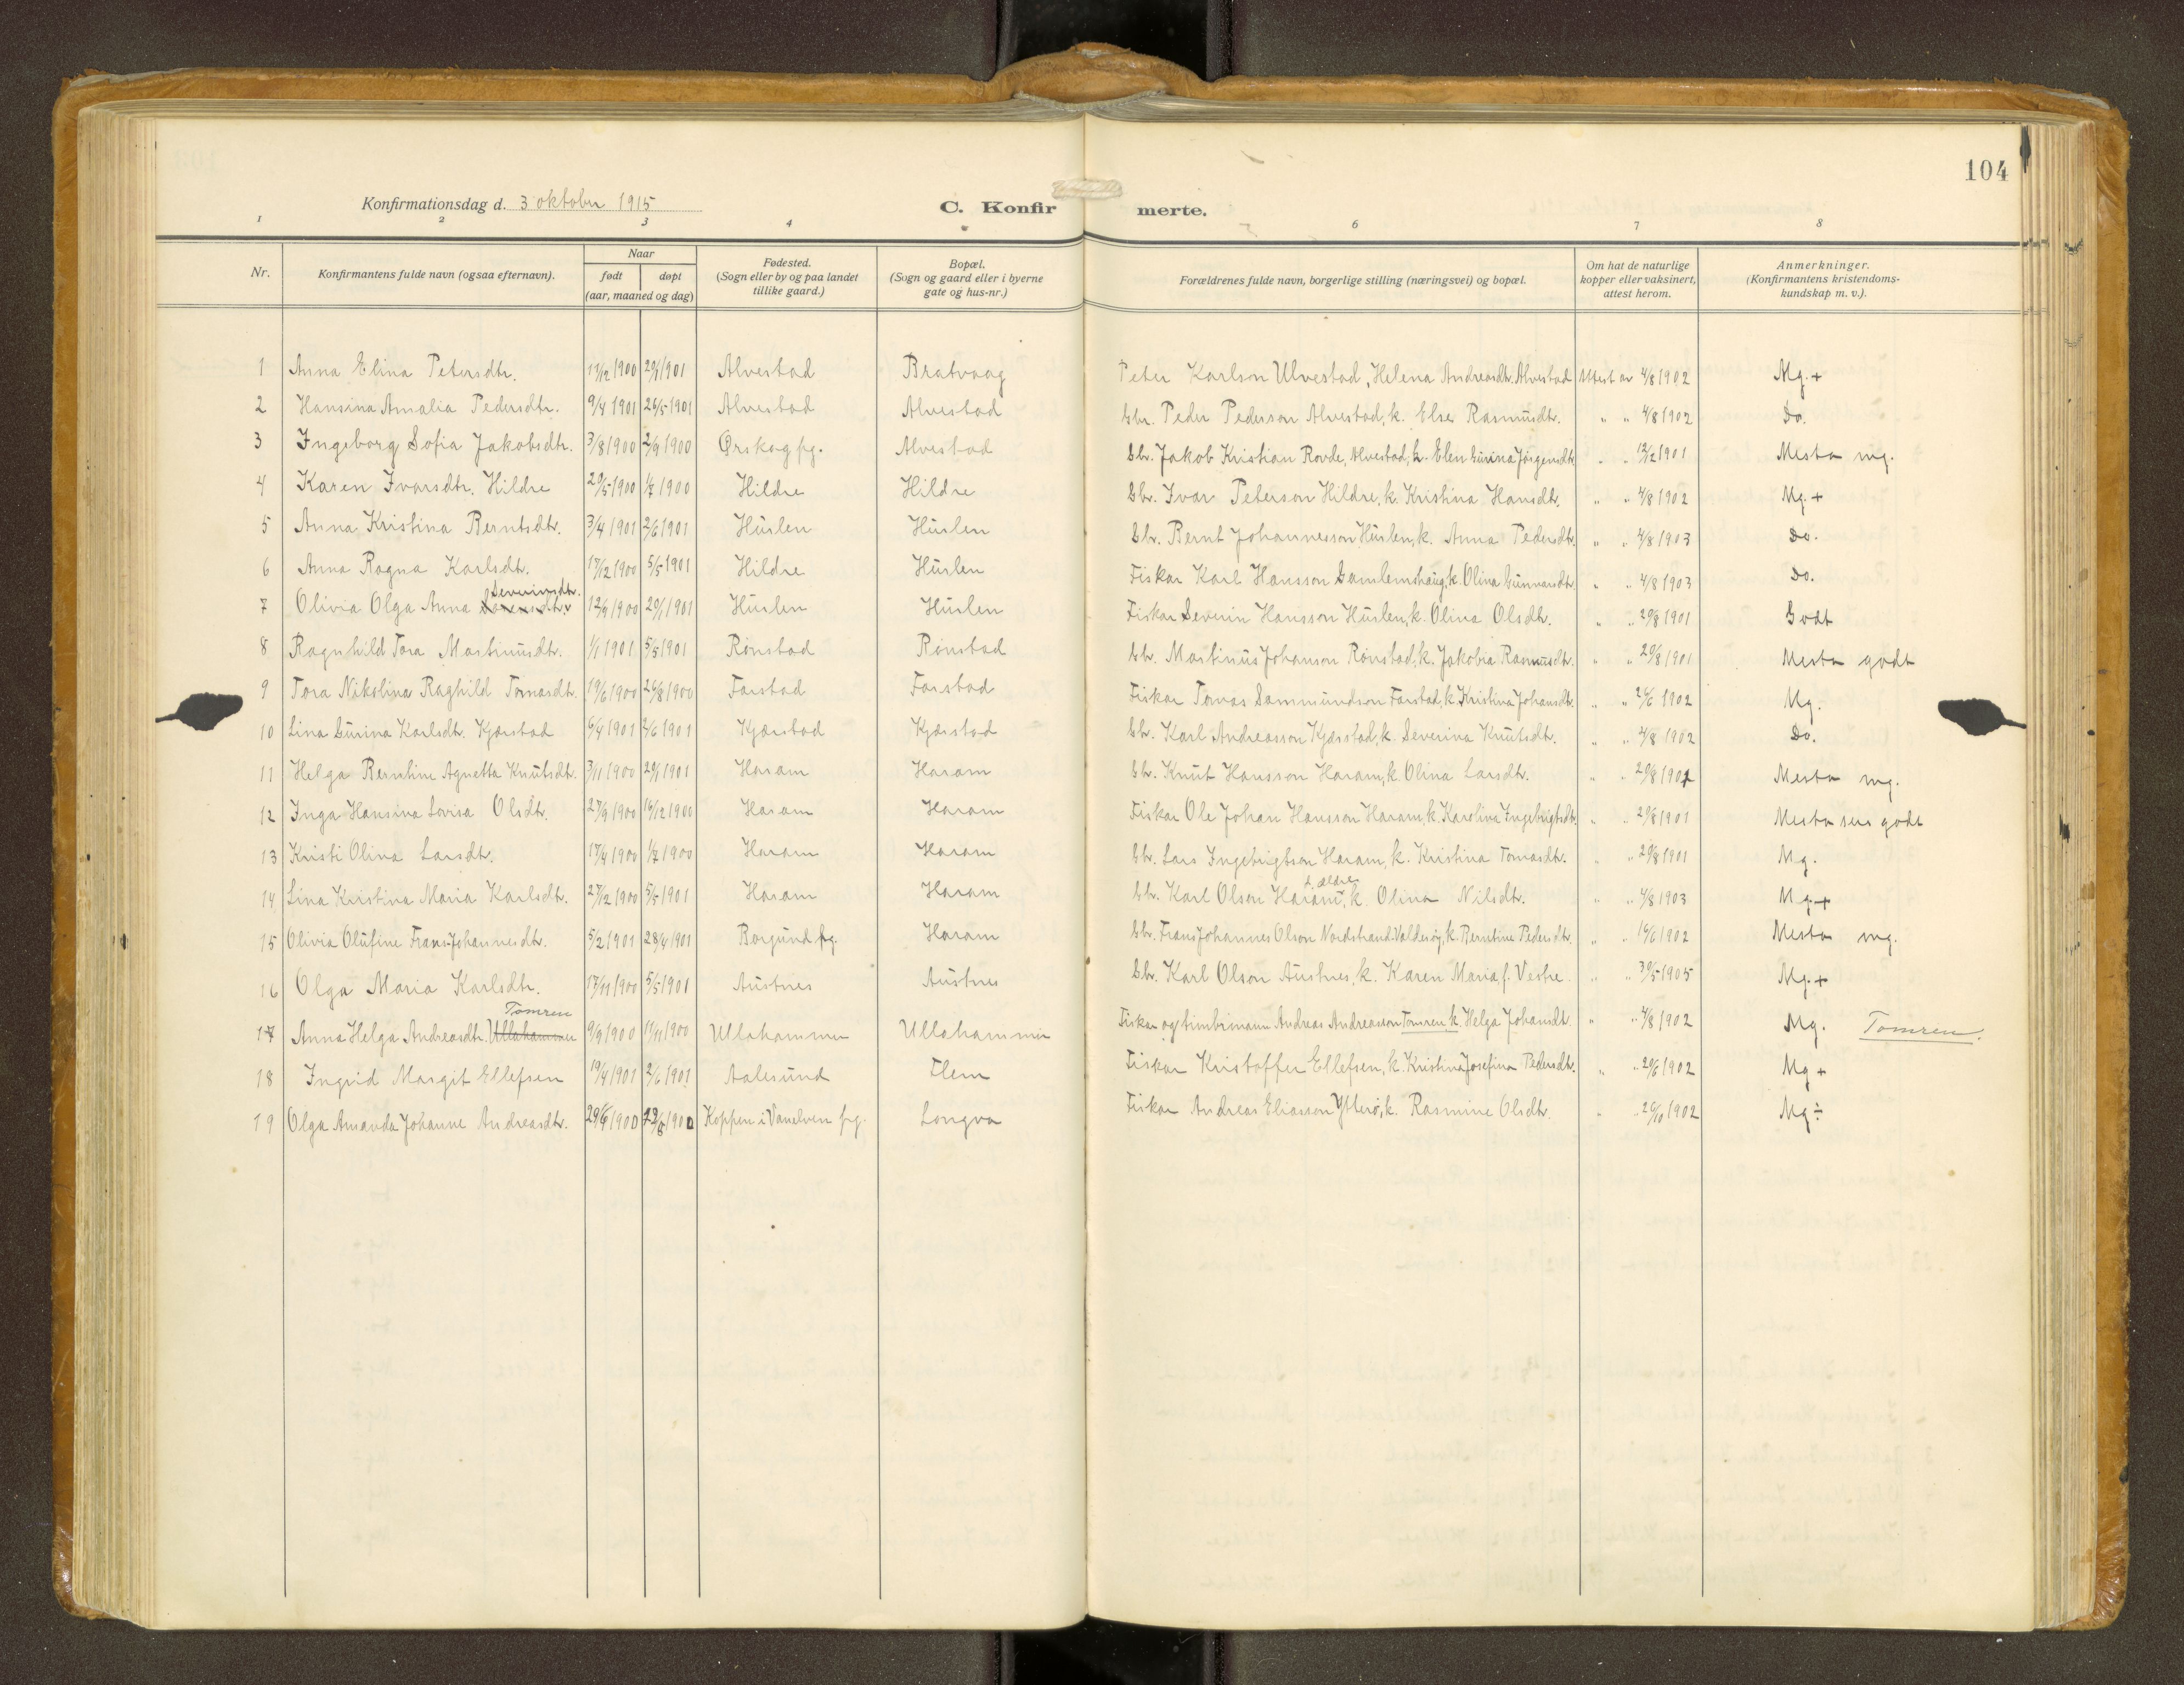 104
Konfirmationsdag d. 3 oktober 1915
C. Konfirmerte.
1 2 3 4 6 7 8
Nr. Konfirmantens fulde navn (ogsaa efternavn). Naar født døpt (aar, maaned og dag) Fødested. (Sogn eller by og paa landet tillike gaard.) Bopæl. (Sogn og gaard eller i byerne gate og hus-nr.) Forældrenes fulde navn, borgerlige stilling (næringsvei) og bopæl. Om hat de naturlige kopper eller vaksinert, attest herom. Anmerkninger. (Konfirmantens kristendoms-kundskap m. v.).
1 Anna Elina Petersdtr. 11/12 1900 20/1 1901 Alvestad Bratvaag Peter Karlson Ulvestad, Helena Andreasdtr. Alvestad Attest av 4/8 1902 Mg. +
2 Hansina Amalia Pedersdtr. 9/4 1901 26/5 1901 Alvestad Alvestad Gbr. Peder Pederson Alvestad, k. Else Rasmusdtr. " " 4/8 1902 Do.
3 Ingeborg Sofia Jakobsdtr. 3/8 1900 2/9 1900 Ørskog pg. Alvestad Gbr. Jakob Kristian Rovde, Alvestad, k. Elen Gurina Jørgensdtr. " " 12/2 1901 Mesta mg.
4 Karen Ivarsdtr. Hildre 20/5 1900 1/7 1900 Hildre Hildre Gbr. Ivar Peterson Hildre, k. Kristina Hansdtr. " " 4/8 1902 Mg. +
5 Anna Kristina Berntsdtr. 3/4 1901 2/6 1901 Huslen Huslen Gbr. Bernt Johannesson Huslen, k. Anna Pedersdtr. " " 4/8 1903 Do.
6 Anna Ragna Karlsdtr. 17/12 1900 5/5 1901 Hildre Huslen Fiskar Karl Hansson Gamlemshaug, k. Olina Gunnarsdtr. " " 4/8 1903 Do.
7 Olivia Olga Anna Severinsdtr. 12/9 1900 20/1 1901 Huslen Huslen Fiskar Severin Hansson Huslen, k. Olina Olsdtr. " " 20/8 1901 Godt
8 Ragnhild Tora Martinusdtr. 1/1 1901 5/5 1901 Rønstad Rønstad Gbr. Martinus Johanson Rønstad, k. Jakobia Rasmusdtr. " " 20/8 1901 Mesta godt
9 Tora Nikolina Raghild Tomasdtr. 19/6 1900 26/8 1900 Farstad Farstad Fiskar Tomas Sammundson Farstad, k. Kristina Johansdtr. " " 26/6 1902 Mg.
10 Lina Gurina Karlsdtr. Kjærstad 6/4 1901 2/6 1901 Kjærstad Kjærstad Gbr. Karl Andreasson Kjærstad, k. Severina Knutsdtr. " " 4/8 1902 Do.
11 Helga Berntine Agnetta Knutsdtr. 3/11 1900 20/1 1901 Haram Haram Gbr. Knut Hansson Haram, k. Olina Larsdtr. " " 20/8 1901 Mesta mg.
12 Inga Hansina Lovisa Olsdtr. 27/9 1900 16/12 1900 Haram Haram Fiskar Ole Johan Hansson Haram, k. Karolina Ingebrigtsdtr. " " 20/8 1901 Mesta sers godt
13 Kristi Olina Larsdtr. 17/4 1900 1/7 1900 Haram Haram Gbr. Lars Ingebrigtson Haram, k. Kristina Tomasdtr. " " 20/8 1901 Mg.
14 Lina Kristina Maria Karlsdtr. 27/12 1900 5/5 1901 Haram Haram Gbr. Karl Olson Haram d. ældre, k. Olina Nilsdtr. " " 4/8 1903 Mg. +
15 Olivia Olufine Frans Johannesdtr. 5/2 1901 28/4 1901 Borgund pg. Haram Gbr. Frans Johannes Olson Nordstrand Valderøy, k. Berntine Pedersdtr. " " 16/6 1902 Mesta mg.
16 Olga Maria Karlsdtr. 17/11 1900 5/5 1901 Austnes Austnes Gbr. Karl Olson Austnes, k. Karen Maria f. Vestre " " 30/5 1905 Mg. +
17 Anna Helga Andreasdtr. Ullahammer Tomren 9/9 1900 11/11 1900 Ullahammer Ullahammer Fiskar og timbrmann Andreas Andreasson Tomren, k. Helga Johansdtr. " " 4/8 1902 Mg. Tomren.
18 Ingrid Margit Ellefsen 19/4 1901 2/6 1901 Aalesund Flem Fiskar Kristoffer Ellefsen, k. Kristina Josefina Pedersdtr. " " 26/6 1902 Mg +
19 Olga Amanda Johanne Andreasdtr. 29/4 1900 1900 Koppen i Vanelven pg. Longva Fiskar Andreas Eliasson Ytterø, k. Rasmine Olsdtr. " " 26/10 1902 Mg ÷